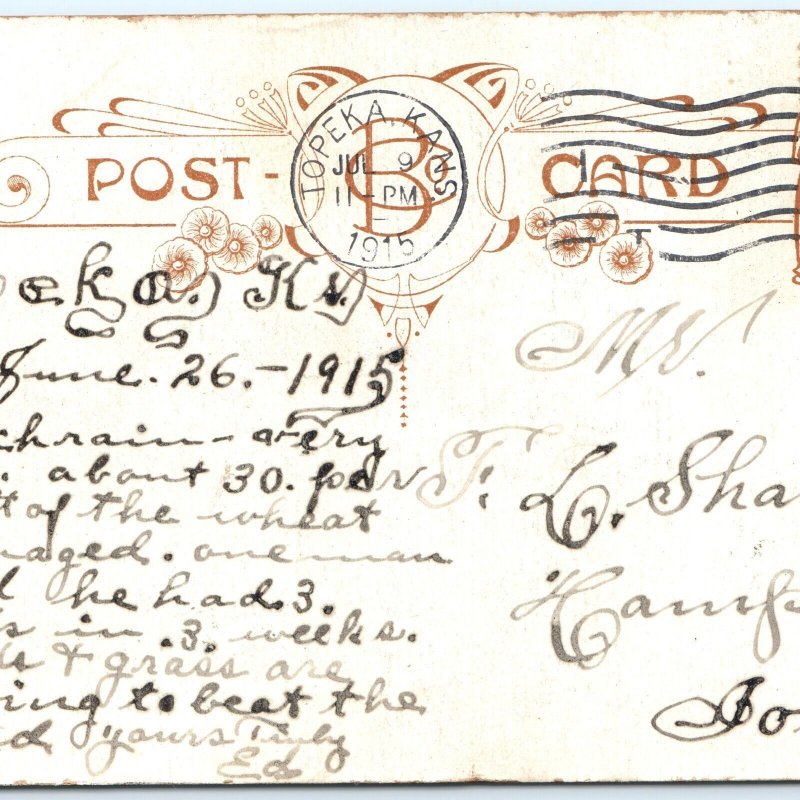 POST-CARD
TOPEKA, KANS.
JUL 9
11-PM
1915
eka, Ks.
June. 26.-1915
ch rain - very
. about 30. per
t of the wheat
maged. one man
d he had. 3.
s in .3. weeks.
& grass are
ing to beat the
ed yours Truly
Ed
Mr.
T. L. Sha
Hamp
Io